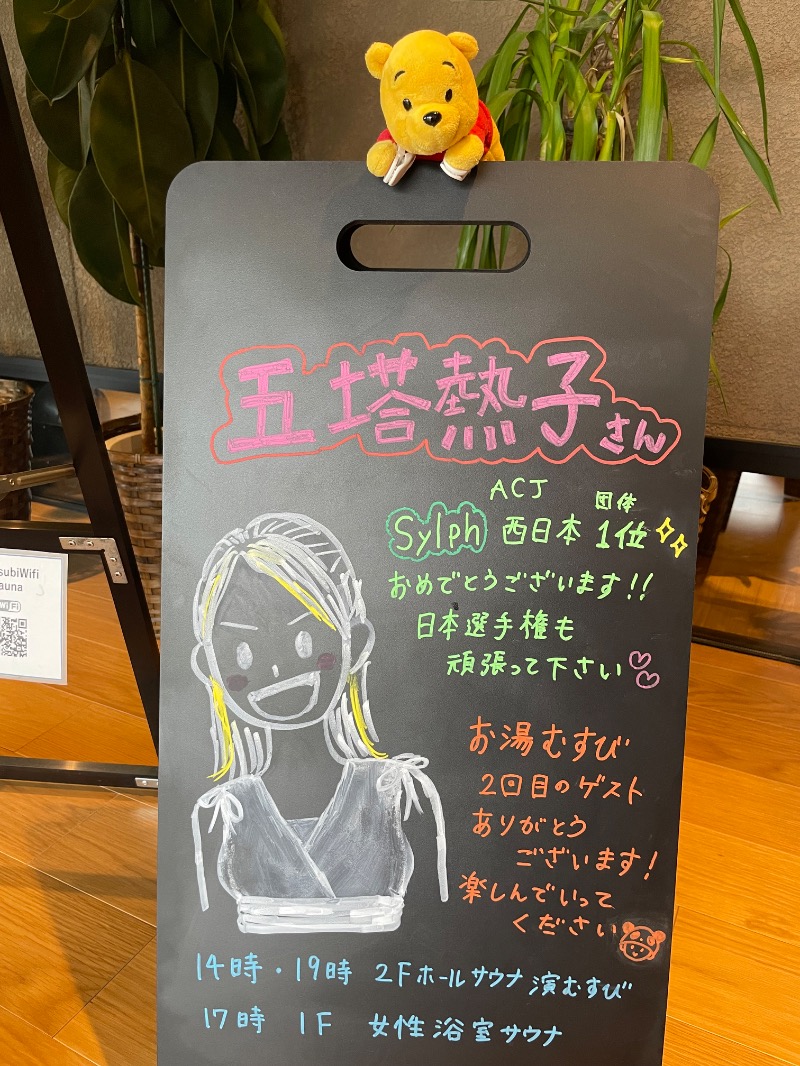 五塔熱子さん
ACJ 団体
Sylph 西日本 1位
おめでとうございます!!
日本選手権も
頑張って下さい
お湯むすび
2回目のゲスト
ありがとう
ございます!
楽しんでいって
ください
14時・19時 2Fホールサウナ 演むすび
17時 1F 女性浴室サウナ
subiWifi
auna
WiFi